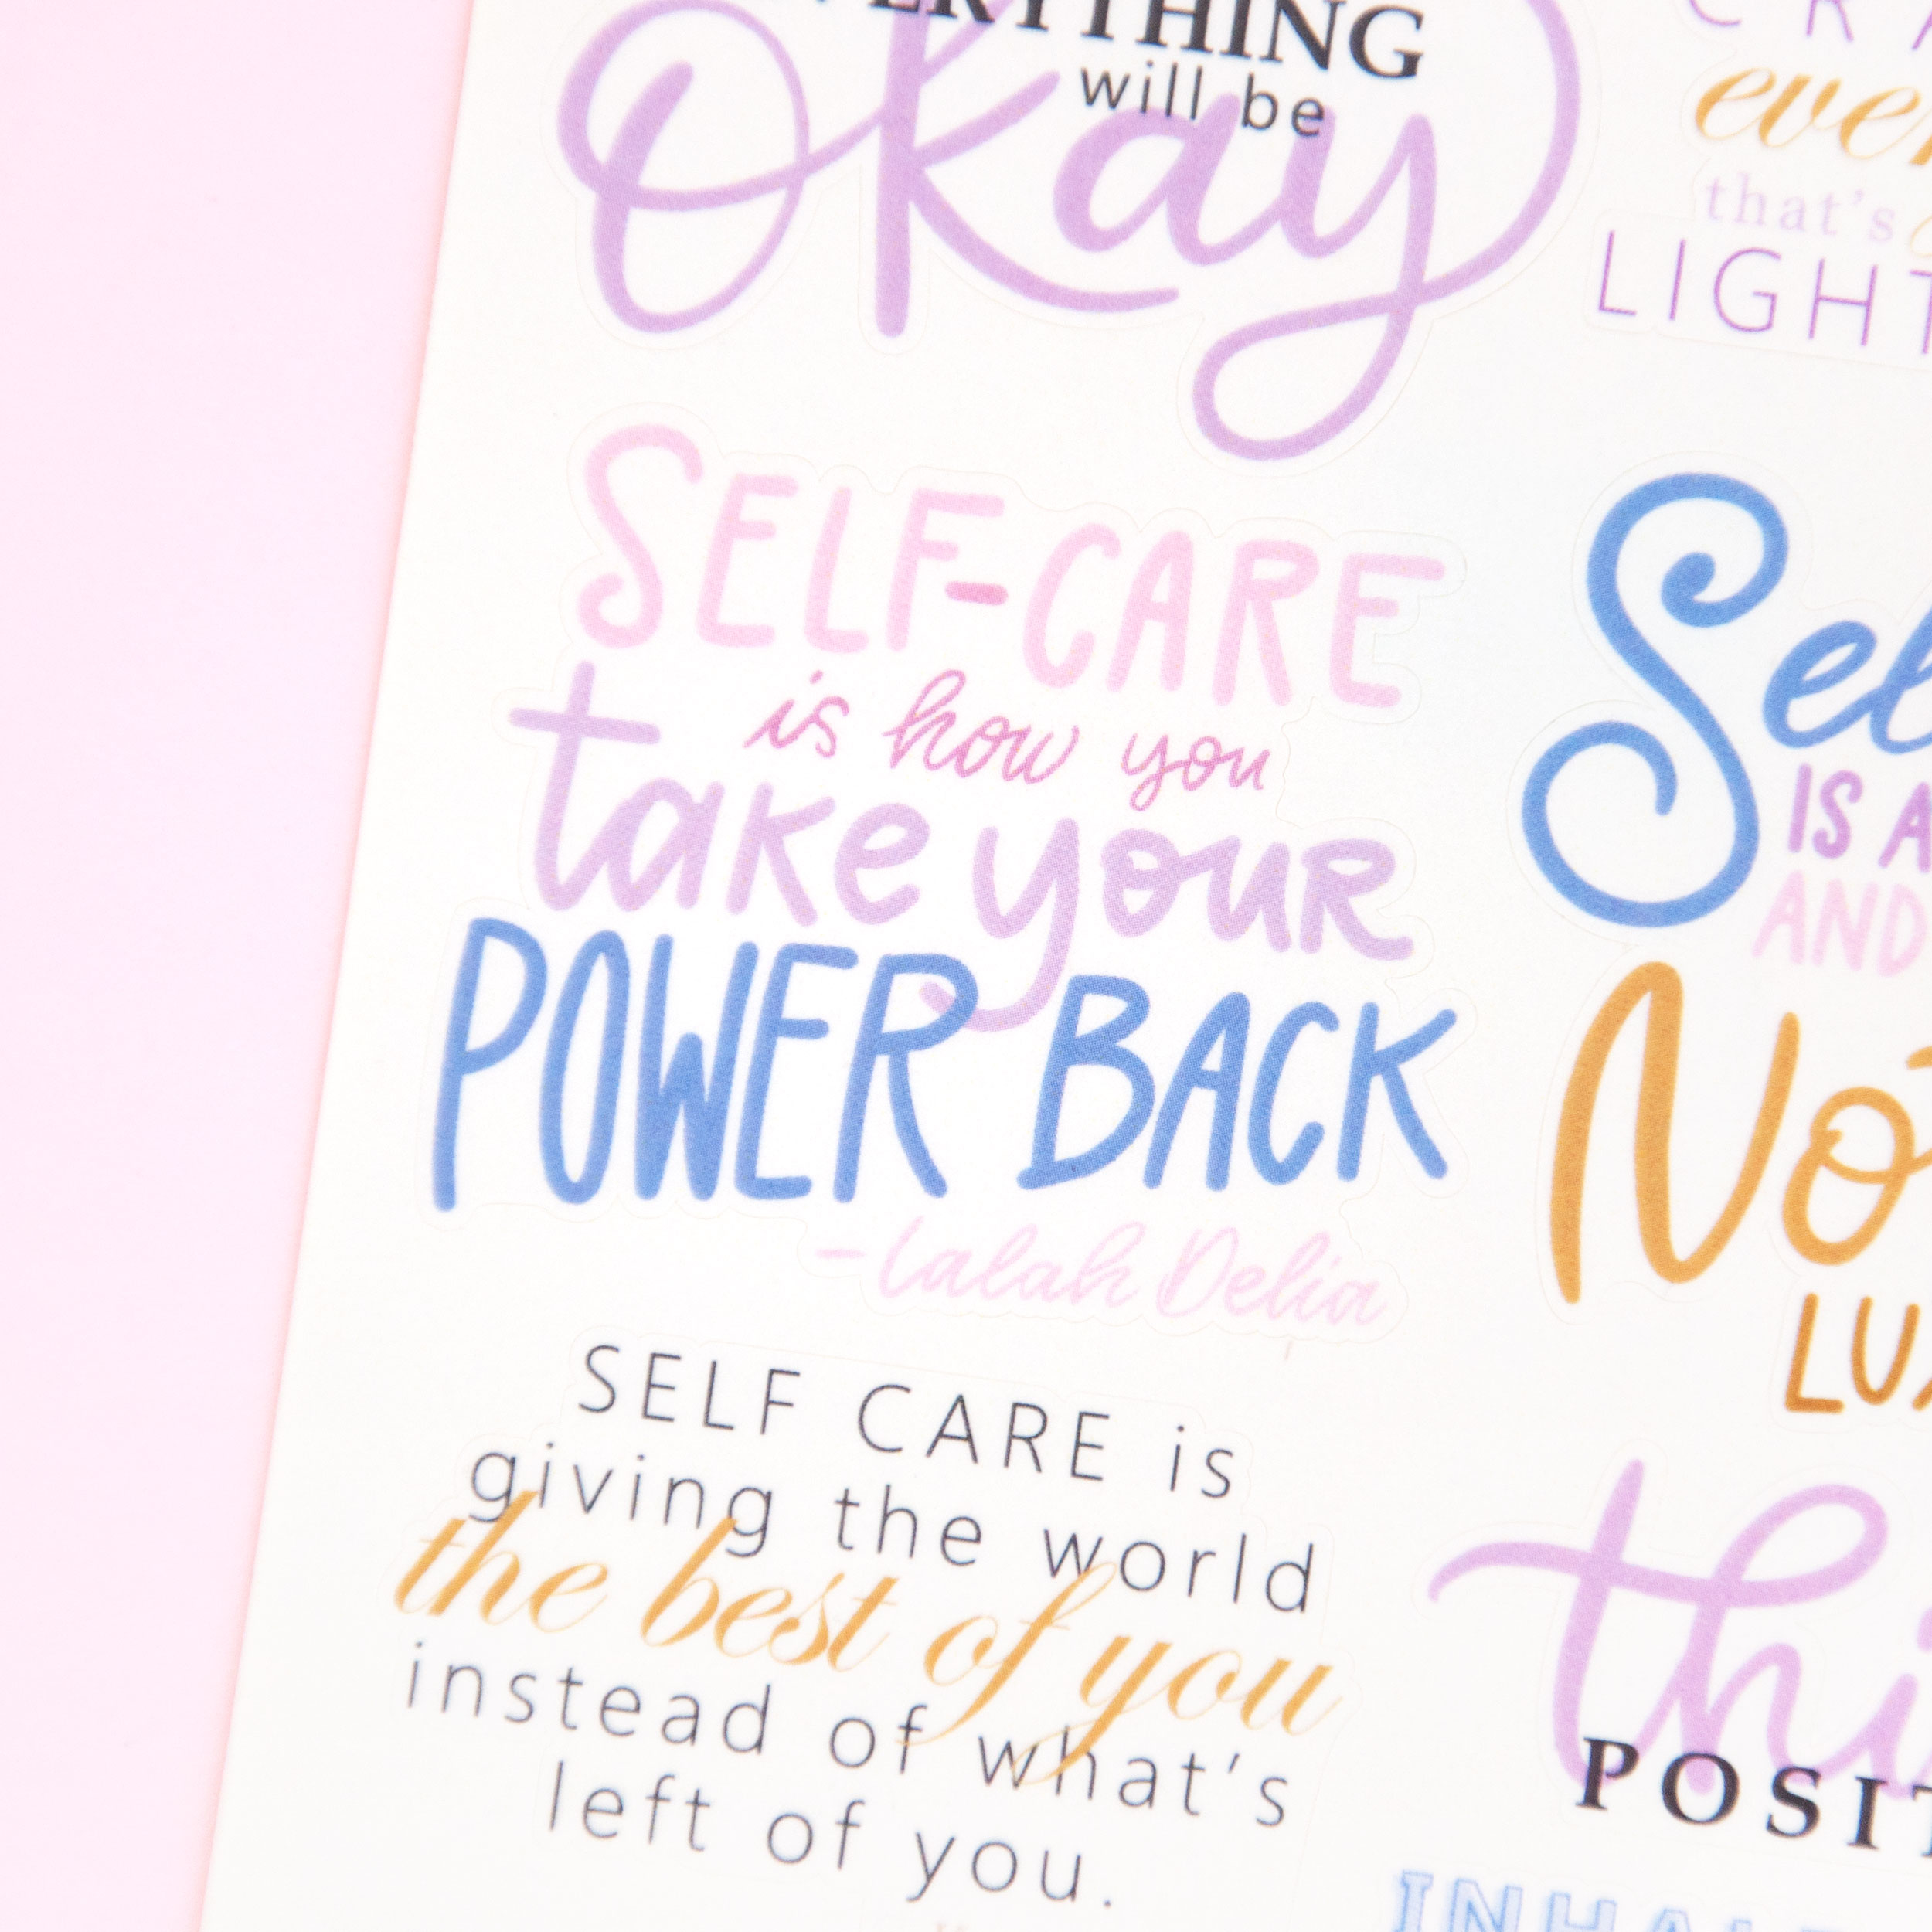 EVERYTHING
will be
Okay
that's
LIGHT
SELF-CARE
is how you
take your
POWER BACK
-Lalah Delia
IS A
AND
SELF CARE is
giving the world
the best of you
instead of what's
left of you.